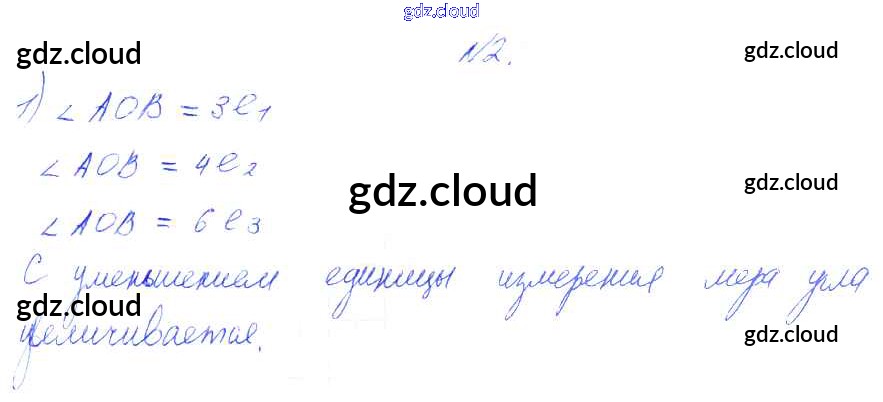 gdz.cloud
gdz.cloud №2. gdz.cloud
1) ∠AOB = 3e1
∠AOB = 4e2
gdz.cloud gdz.cloud
∠AOB = 6e3
С уменьшением единицы измерения мера угла
gdz.cloud
увеличивается. gdz.cloud